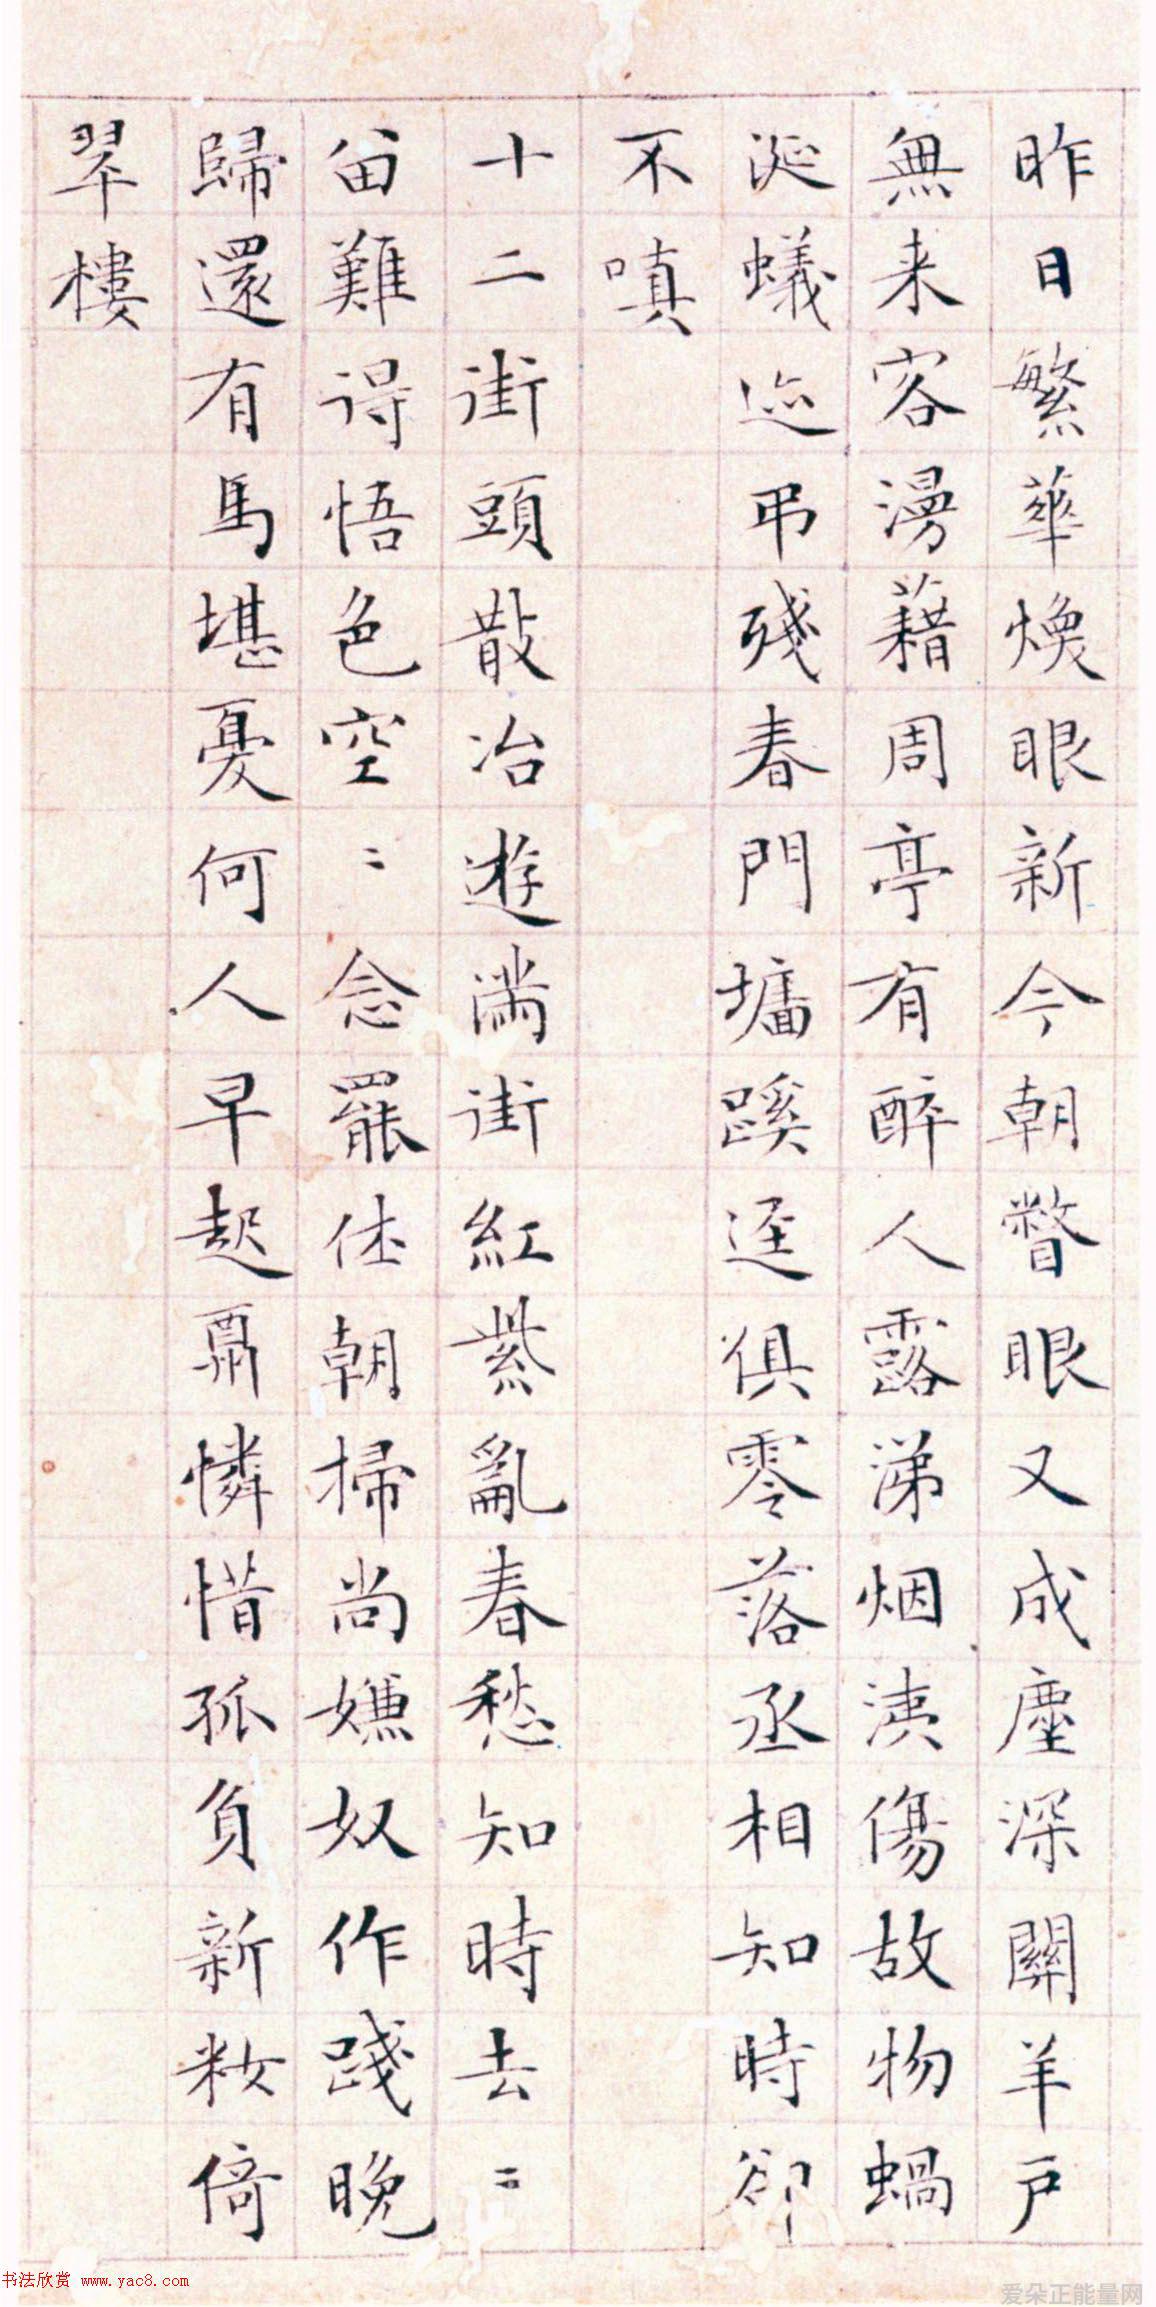 昨日繁華煥眼新今朝瞥眼又成塵深關羊戶
無来客漫藉周亭有醉人露涕烟洟傷故物蝸
涎蟻迹弔殘春門墻蹊逕俱零落丞相知時卻
不嗔
十二街頭散冶遊滿街紅紫亂春愁知時去〻
留難得悟色空〻念罷休朝掃尚嫌奴作踐晚
歸還有馬堪憂何人早起鬲憐惜孤負新妝倚
翠樓
书法欣赏 www.yac8.com
爱朵正能量网